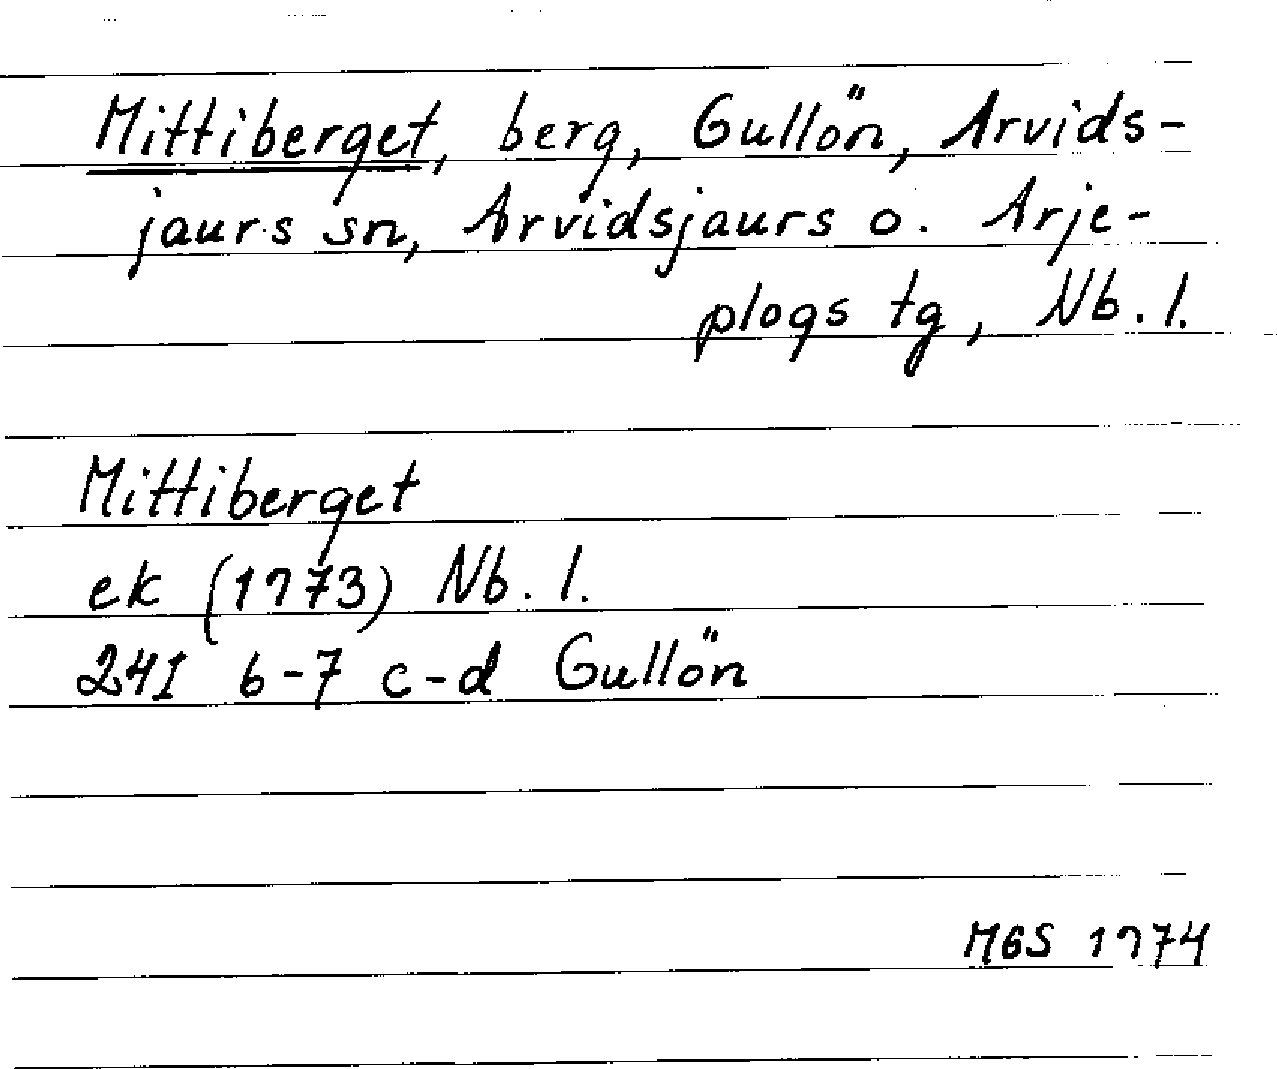 Mittiberget, berg, Gullön, Arvids-
jaurs sn, Arvidsjaurs o. Arje-
plogs tg, Nb. l.
Mittiberget
ek (1973) Nb. l.
24I 6-7 c-d Gullön
MGS 1974